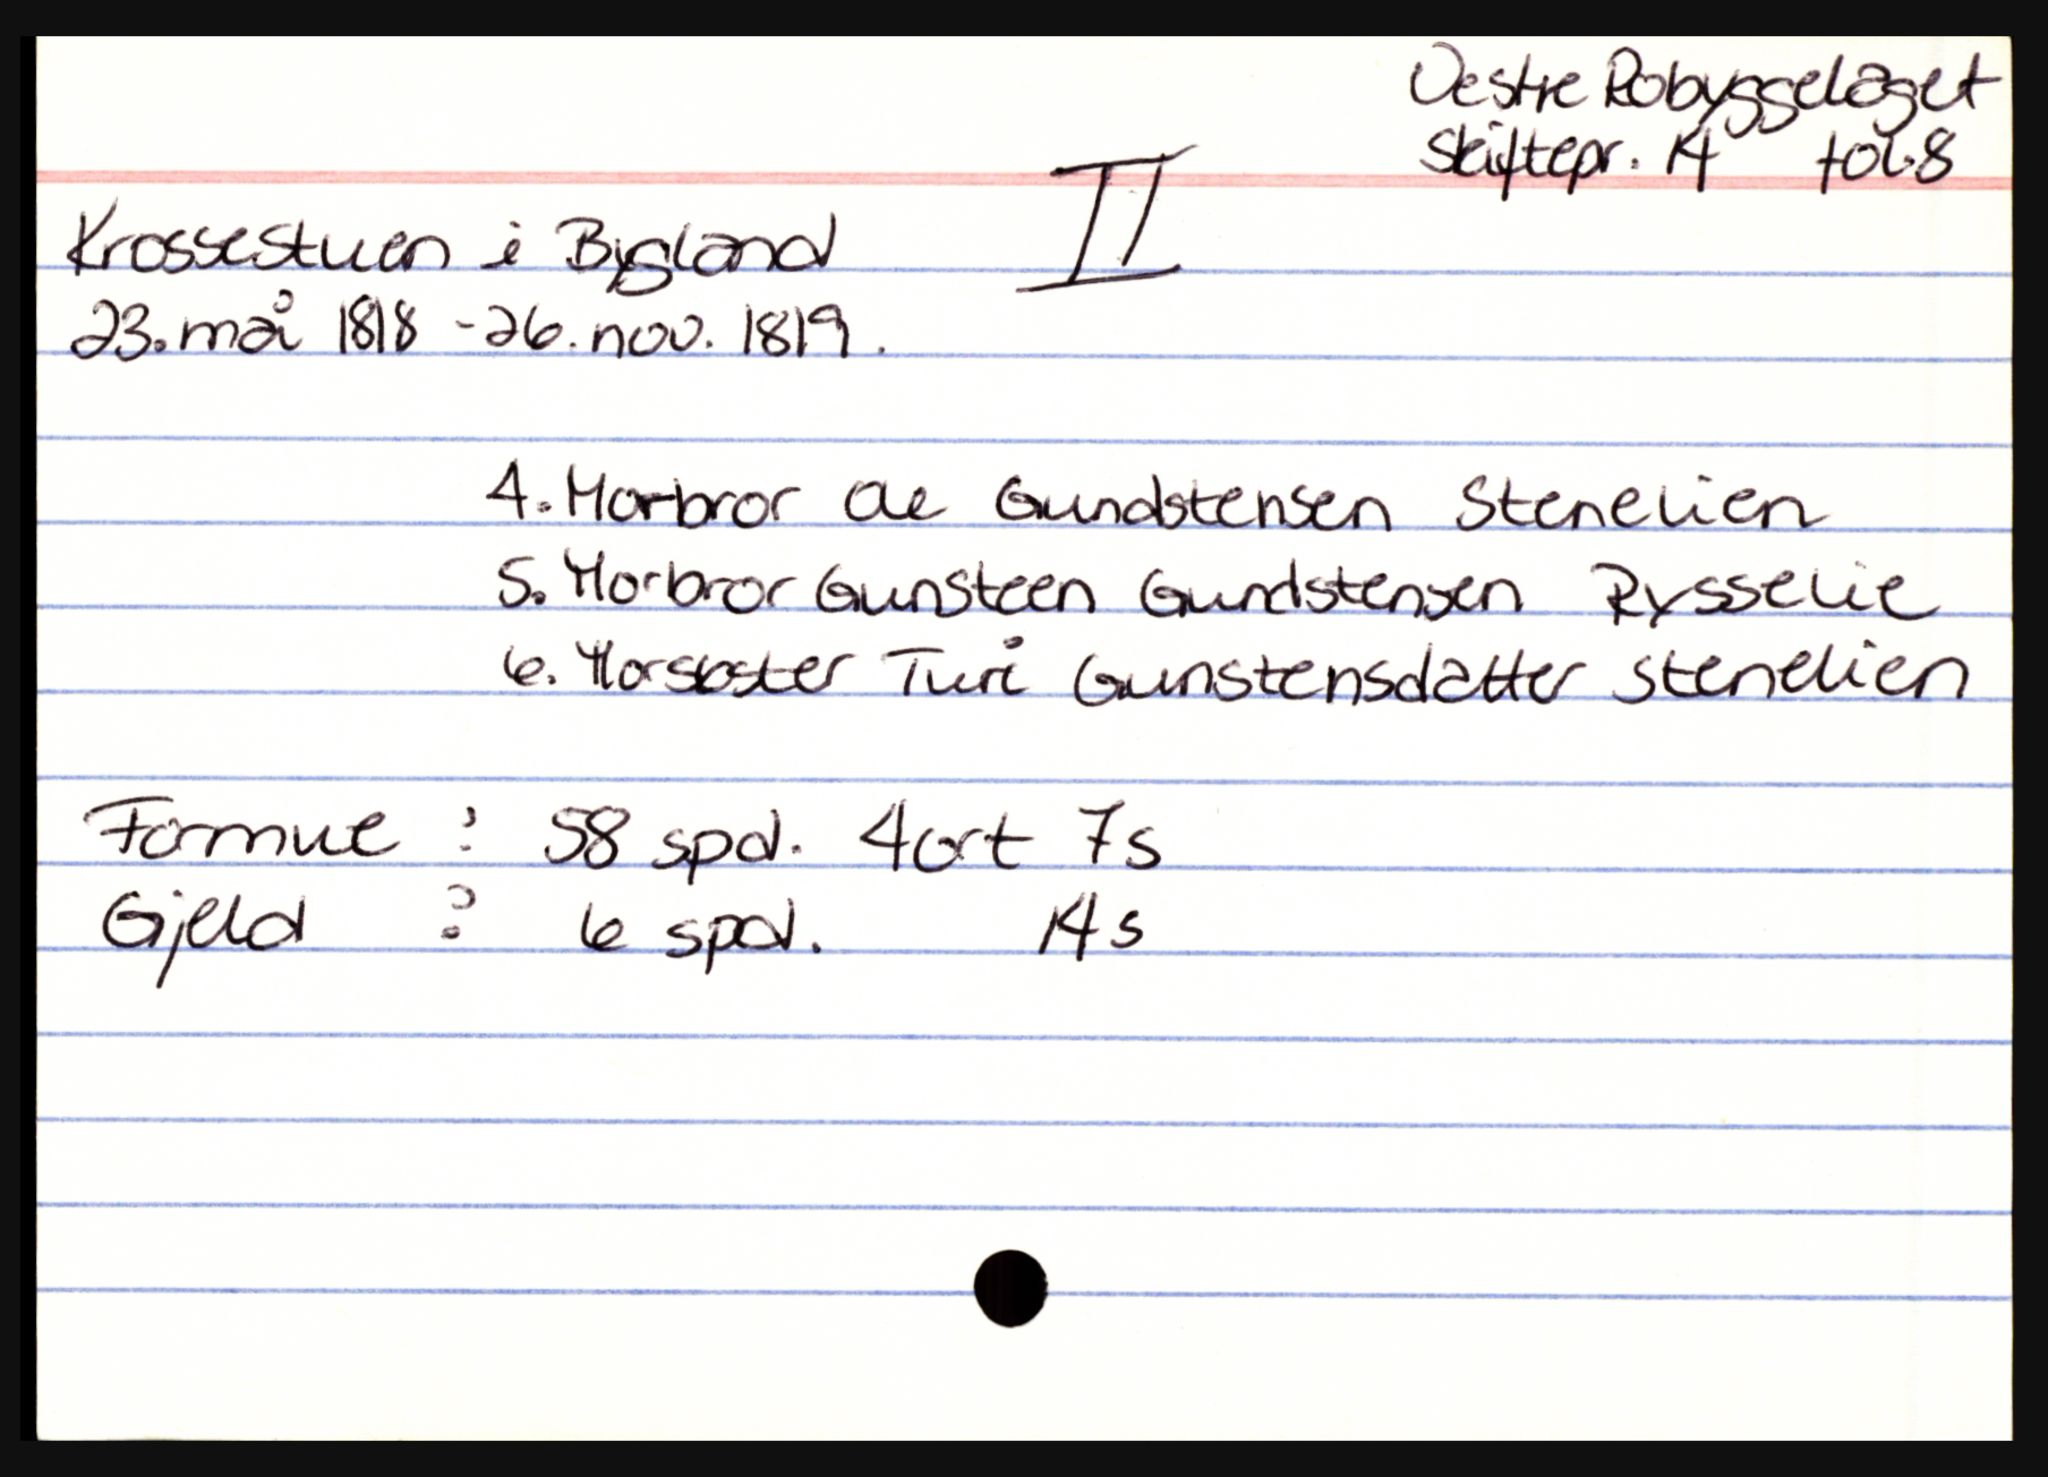 Vestre Robyggelaget
Skiftepr. 14 fol. 8
II
Krossestuen i Bygland
23. mai 1818 - 26. nov. 1819.
4. Morbror Ole Gundstensen Stenelien
5. Morbror Gunsteen Gundstensen Rysselie
6. Morsøster Turi Gunstensdatter Stenelien
Formue : 58 spd. 4 ort 7 s
Gjeld : 6 spd. 14 s